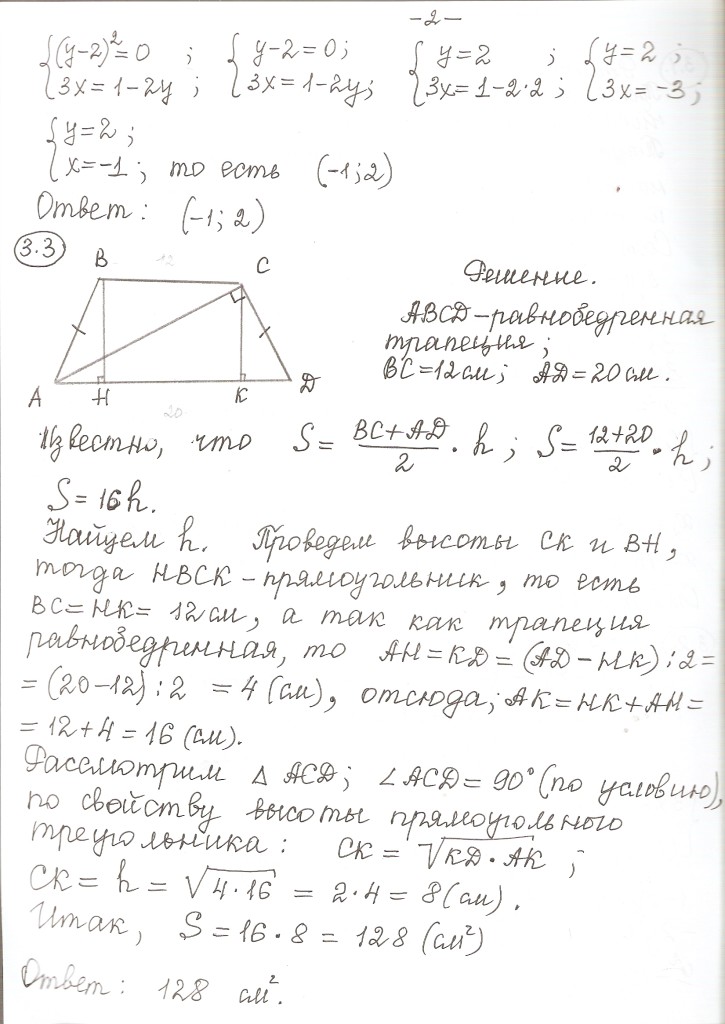 -2-
{(y-2)²=0 ; {y-2=0; {y=2 ; {y=2 ;
3x=1-2y ; 3x=1-2y; 3x=1-2·2 ; 3x=-3;
{y=2 ;
x=-1 ; то есть (-1;2)
Ответ: (-1; 2)
3.3
B 12 C
A H K D
20
Решение.
ABCD-равнобедренная
трапеция;
BC=12см; AD=20см.
Известно, что S= (BC+AD)/2 · h ; S= (12+20)/2 · h ;
S=16h.
Найдем h. Проведем высоты CK и BH,
тогда HBCK-прямоугольник, то есть
BC=HK=12см, а так как трапеция
равнобедренная, то AH=KD=(AD-HK):2=
=(20-12):2 =4(см), отсюда; AK=HK+AH=
=12+4=16(см).
Рассмотрим △ ACD; ∠ACD=90°(по условию),
по свойству высоты прямоугольного
треугольника: CK = √KD·AK ;
CK = h = √4·16 = 2·4 = 8(см).
Итак, S=16·8=128 (см²)
Ответ: 128 см².